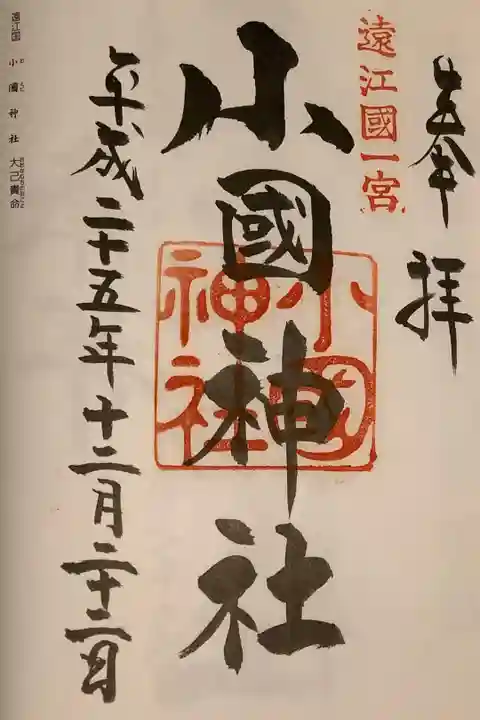 奉拝
遠江國一宮
小國神社
小國神社
平成二十五年十二月二十二日
遠江国 小國神社 大己貴命